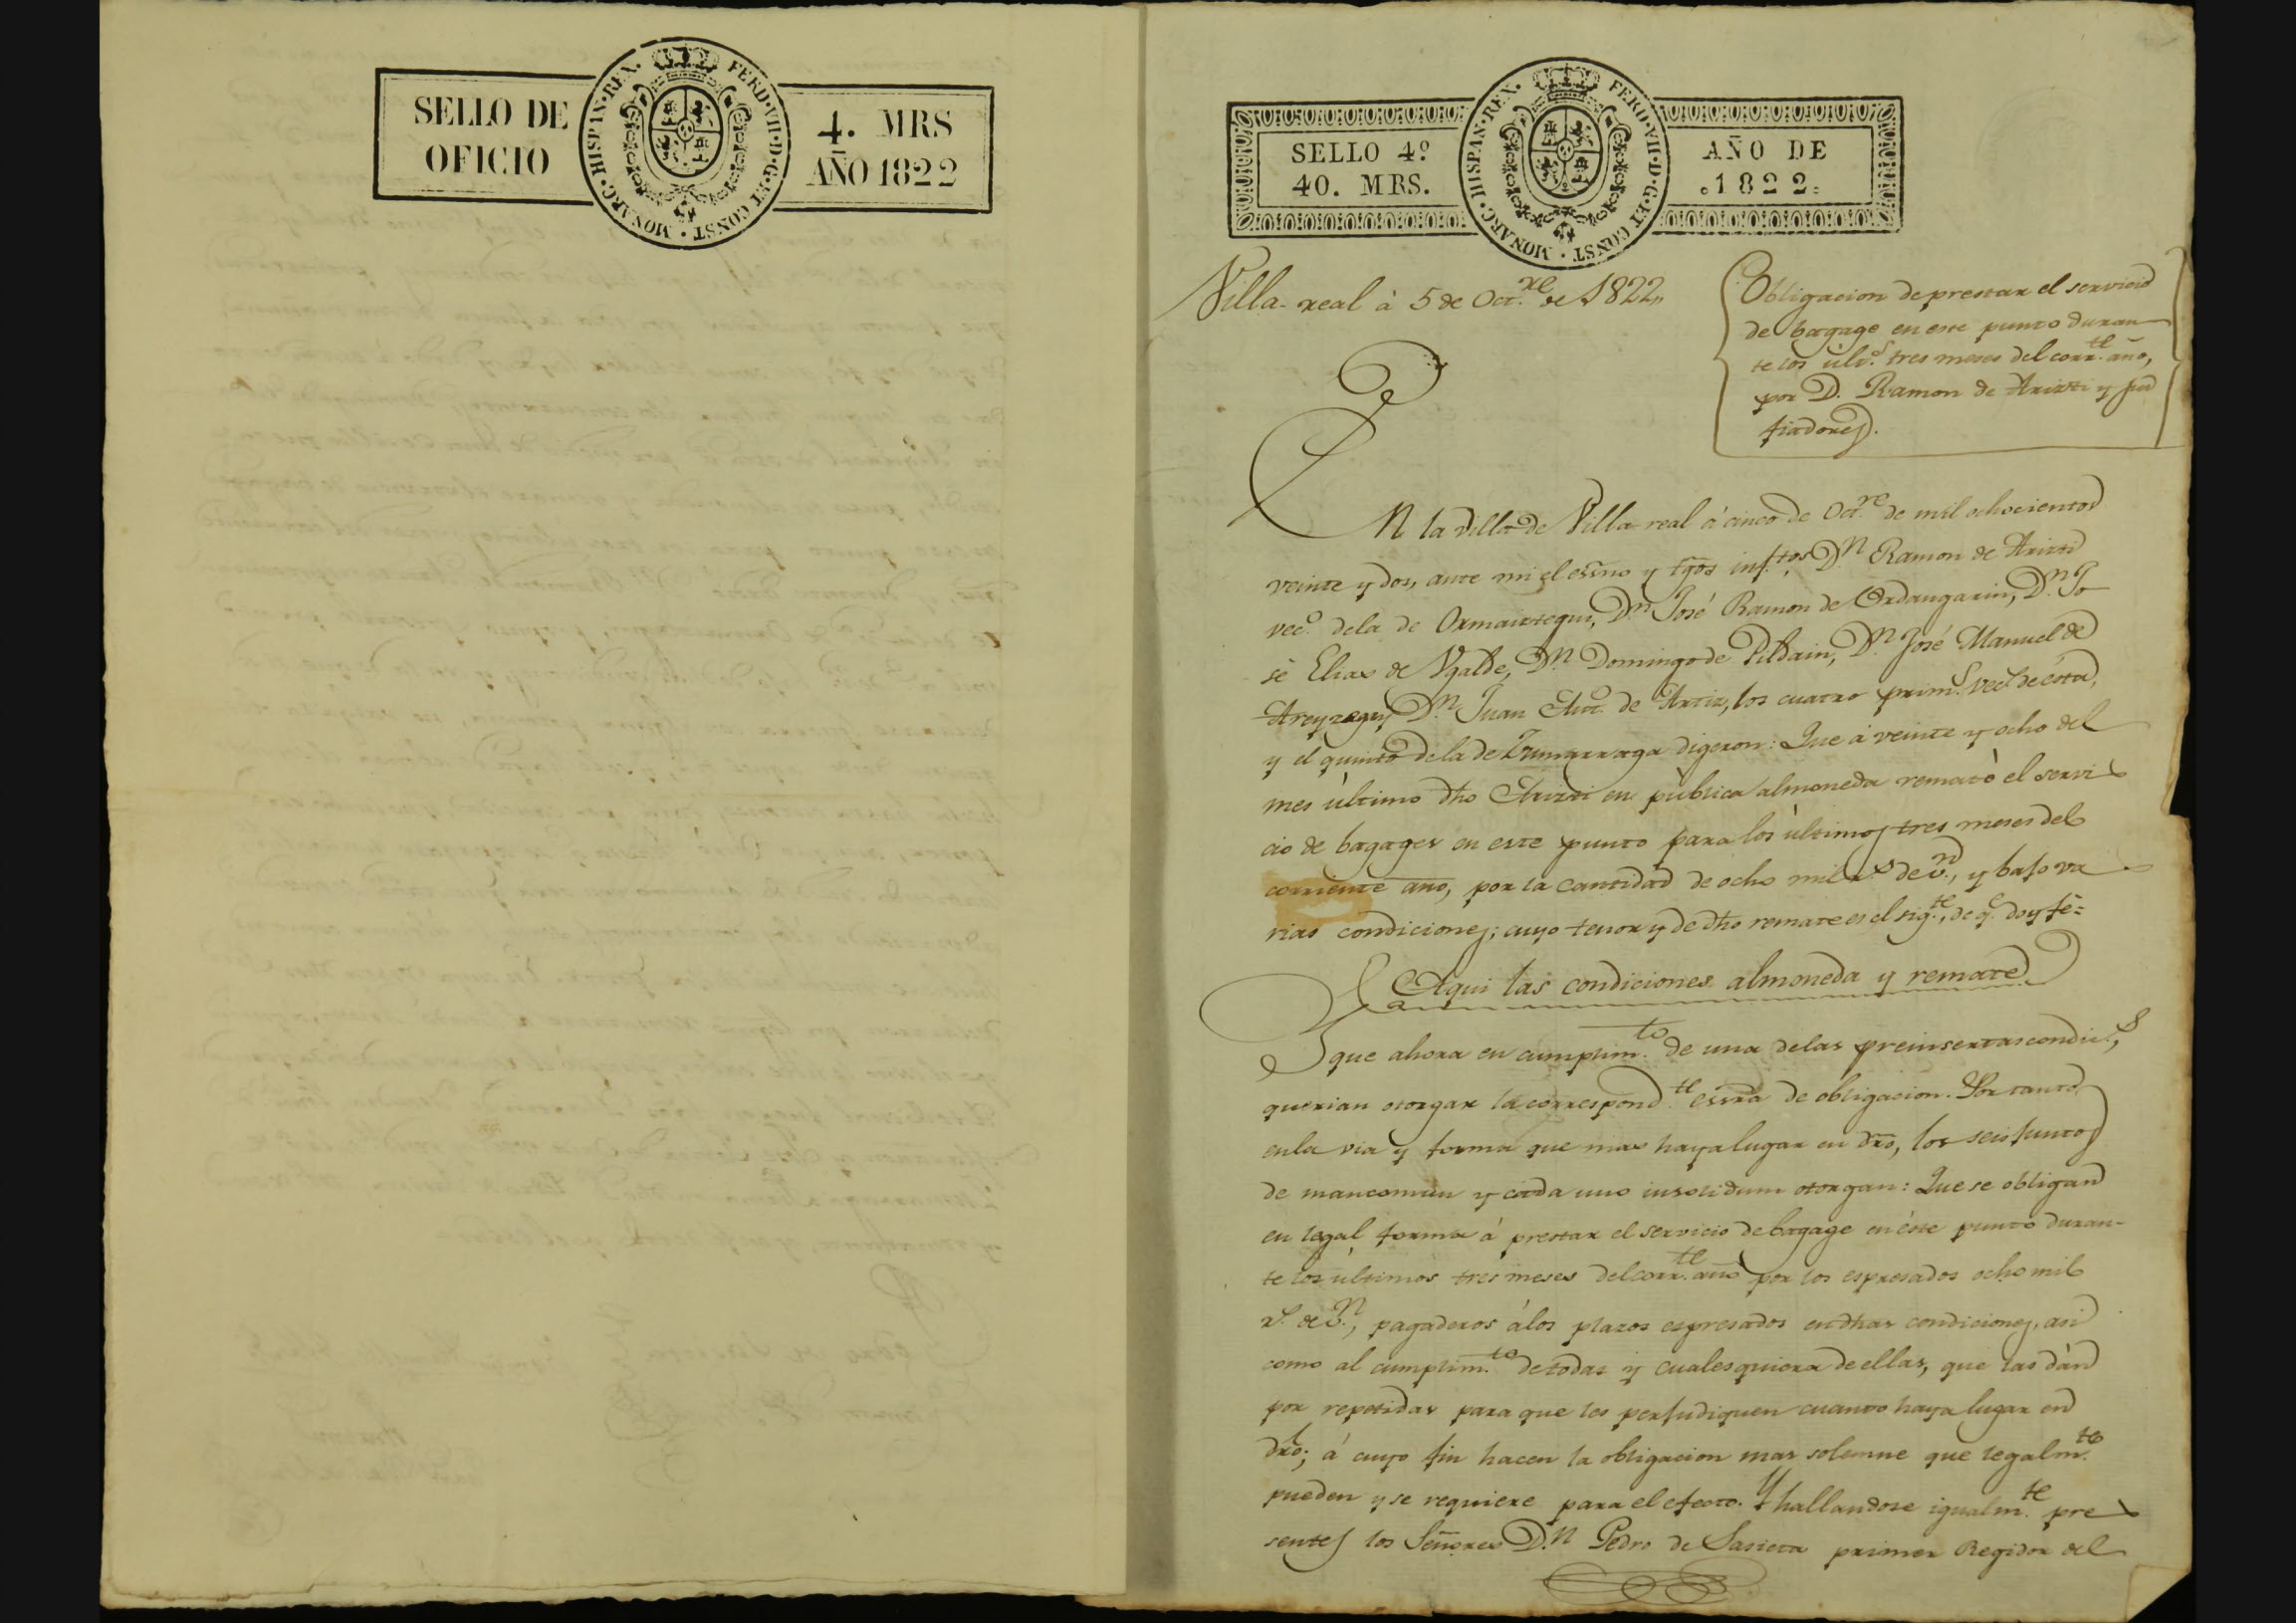 SELLO DE
OFICIO
HISPAN·REX· FERD·VII·D·G·ET CONST·MONARC·
4. MRS
AÑO 1822
SELLO 4º
40. MRS.
HISPAN·REX· FERD·VII·D·G·ET CONST·MONARC·
AÑO DE
1822.
Villa-real à 5 de Oct.re de 1822,,
Obligacion de prestar el servicio
de bagage en este punto duran
te los últ.s tres meses del corr.te año,
por D. Ramon de Arizti y sus
fiadores.
En la villa de Villa-real á cinco de Oct.re de mil ochocientos
veinte y dos, ante mi el essno y tgos inf.tos D.n Ramon de Arizti
vec.o dela de Ormaiztegui, D.n José Ramon de Ordangarin, D.n Jo
sé Elias de Ugalde, D.n Domingo de Pildain, D.n José Manuel de
Areyzaga y D.n Juan Ant.o de Artiz, los cuatro prim.s vec.s de ésta,
y el quinto dela de Zumarraga digeron: Que á veinte y ocho del
mes último dho Arizti en pública almoneda remató el servi
cio de bagages en este punto para los últimos tres meses del
corriente año, por la cantidad de ocho mil r.s de v.n, y bajo va
rias condiciones; cuyo tenor y de dho remate es el sig.te, de q.e doy fé=
Aqui las condiciones almoneda y remate
Y que ahora en cumplim.to de una delas preinsertas condic.s,
querian otorgar la correspond.te essra de obligacion. Por tanto
enla via y forma que mas haya lugar en dro, los seis juntos
de mancomun y cada uno insolidum otorgan: Que se obligan
en legal forma á prestar el servicio de bagage en éste punto duran-
te los últimos tres meses del corr.te año por los espresados ocho mil
r.s de v.n, pagaderos álos plazos espresados en dhas condiciones, asi
como al cumplim.to de todas y cualesquiera de ellas, que las dán
por repetidas para que les perjudiquen cuanto haya lugar en
dro; á cuyo fin hacen la obligacion mas solemne que legalm.te
pueden y se requiere para el efecto. Y hallandose igualm.te pre
sentes los Señores D.n Pedro de Sasieta primer Regidor del